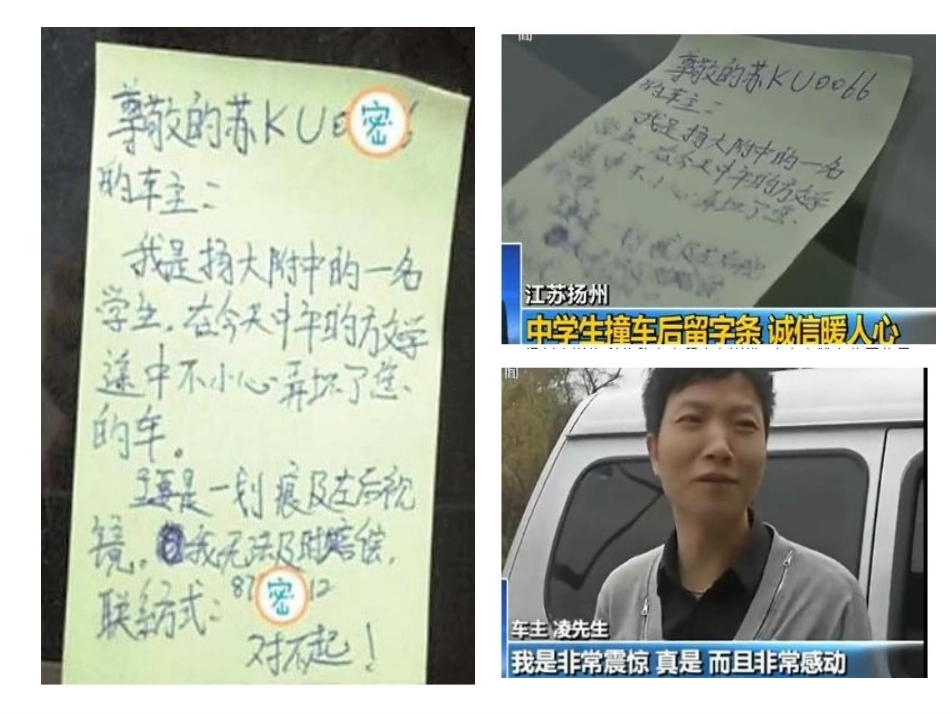 尊敬的苏KU0密6
的车主：
我是扬大附中的一名
学生，在今天中午的放学
途中不小心弄坏了您
的车。
主要是一划痕及左后视
镜。我无法及时赔偿，
联系方式：87密12
对不起！
尊敬的苏KU0066
的车主：
我是扬大附中的一名
学生，在今天中午的放学
不小心弄坏了您
划痕及左后视
江苏扬州
中学生撞车后留字条 诚信暖人心
车主 凌先生
我是非常震惊 真是 而且非常感动